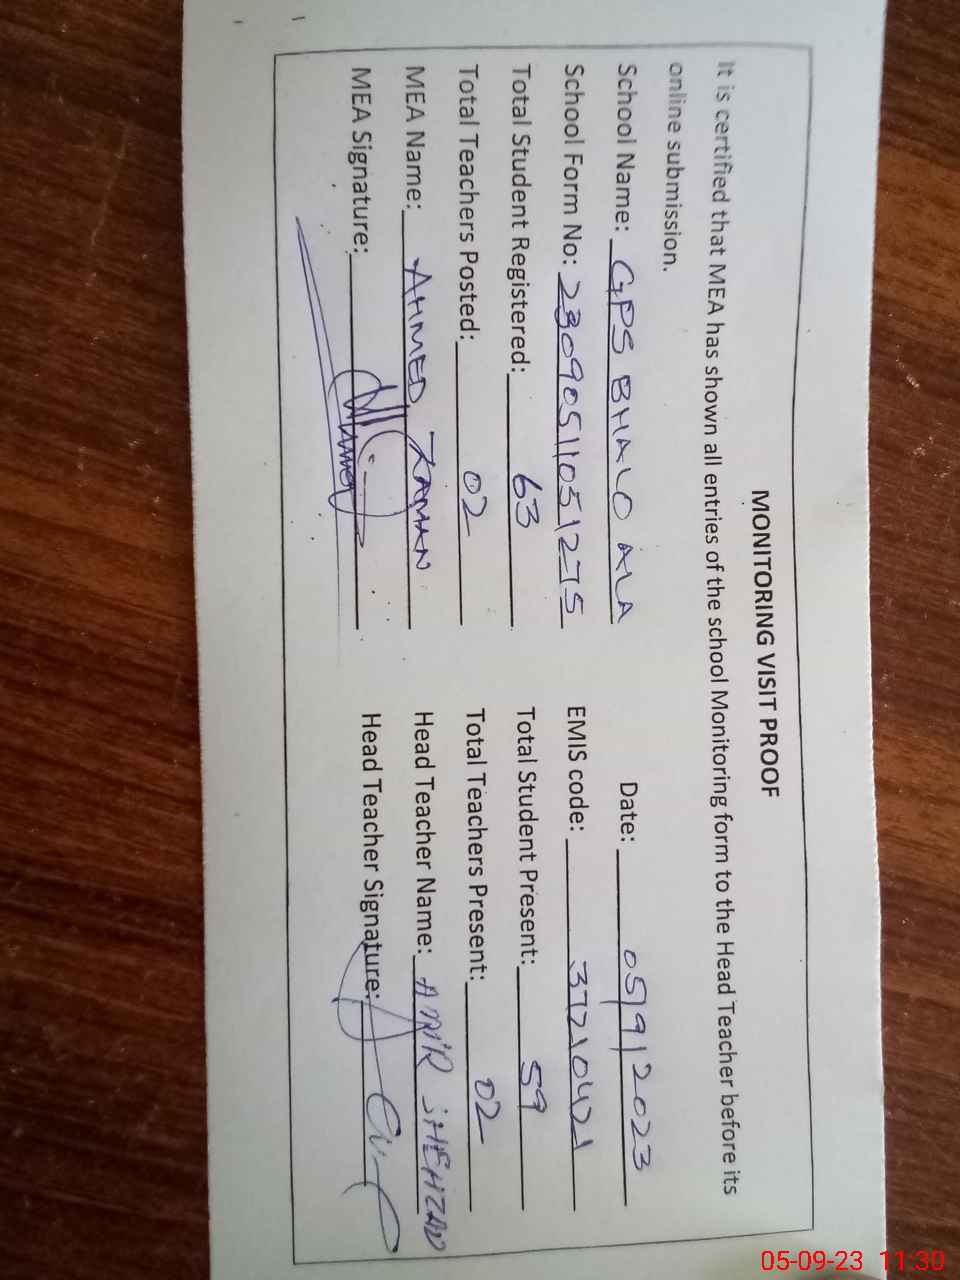 MONITORING VISIT PROOF
It is certified that MEA has shown all entries of the school Monitoring form to the Head Teacher before its
online submission.
School Name: GPS BHALO ALA Date: 05/9/2023
School Form No: 23090511051275 EMIS code: 37210421
Total Student Registered: 63 Total Student Present: 59
Total Teachers Posted: 02 Total Teachers Present: 02
MEA Name: AHMED ZAMAN Head Teacher Name: AMIR SHEHZAD
MEA Signature: Head Teacher Signature:
05-09-23 11:30